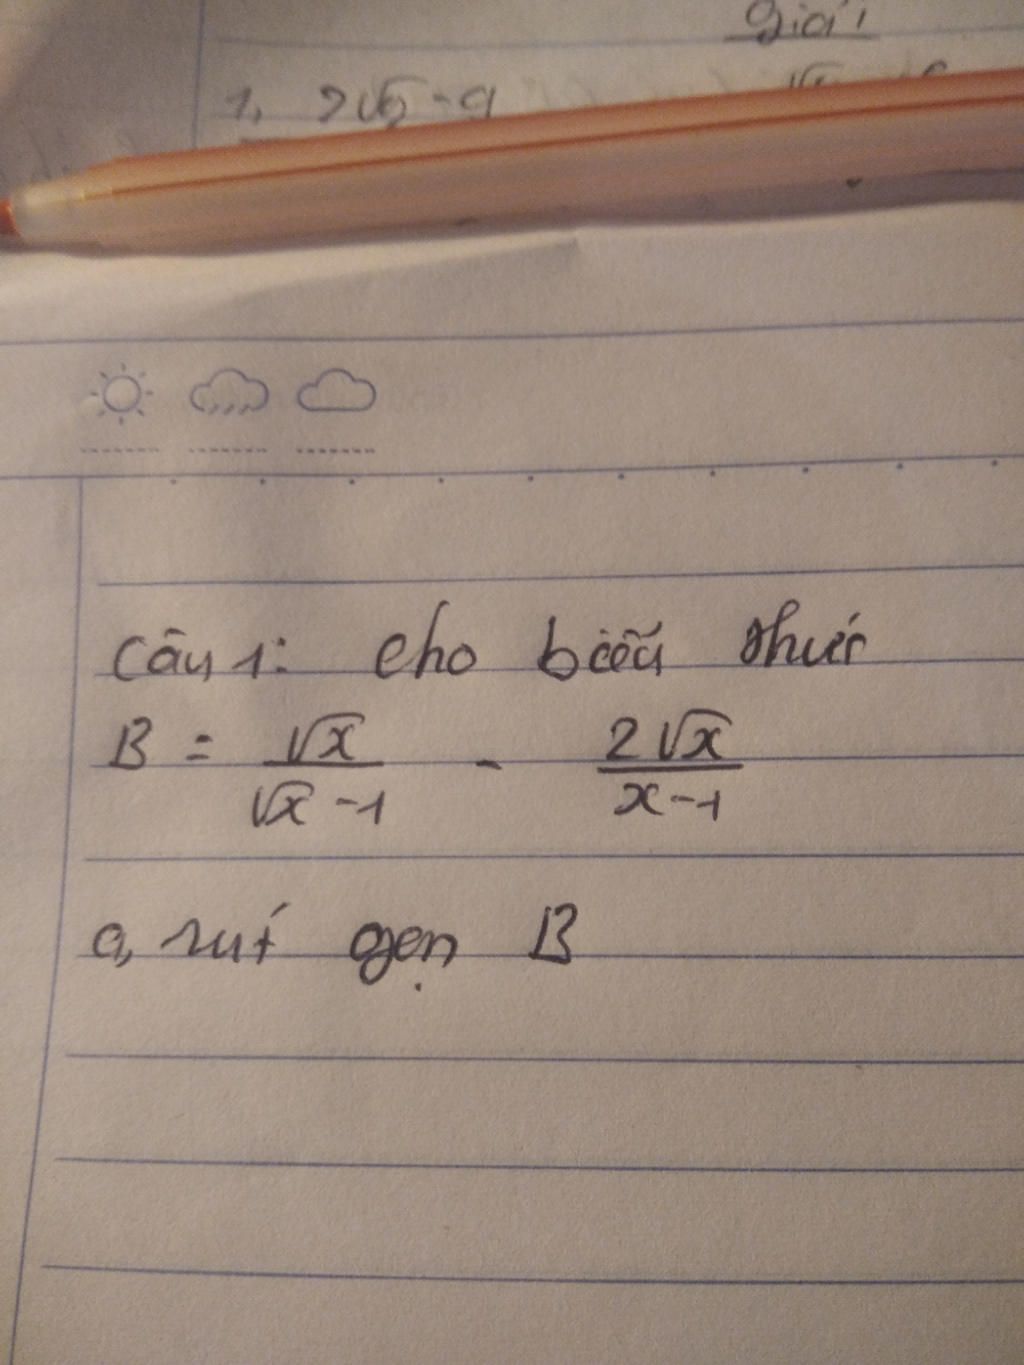 giải
1,
Câu 1: cho biểu thức
B = √x/(√x - 1) - 2√x/(x - 1)
a, rút gọn B